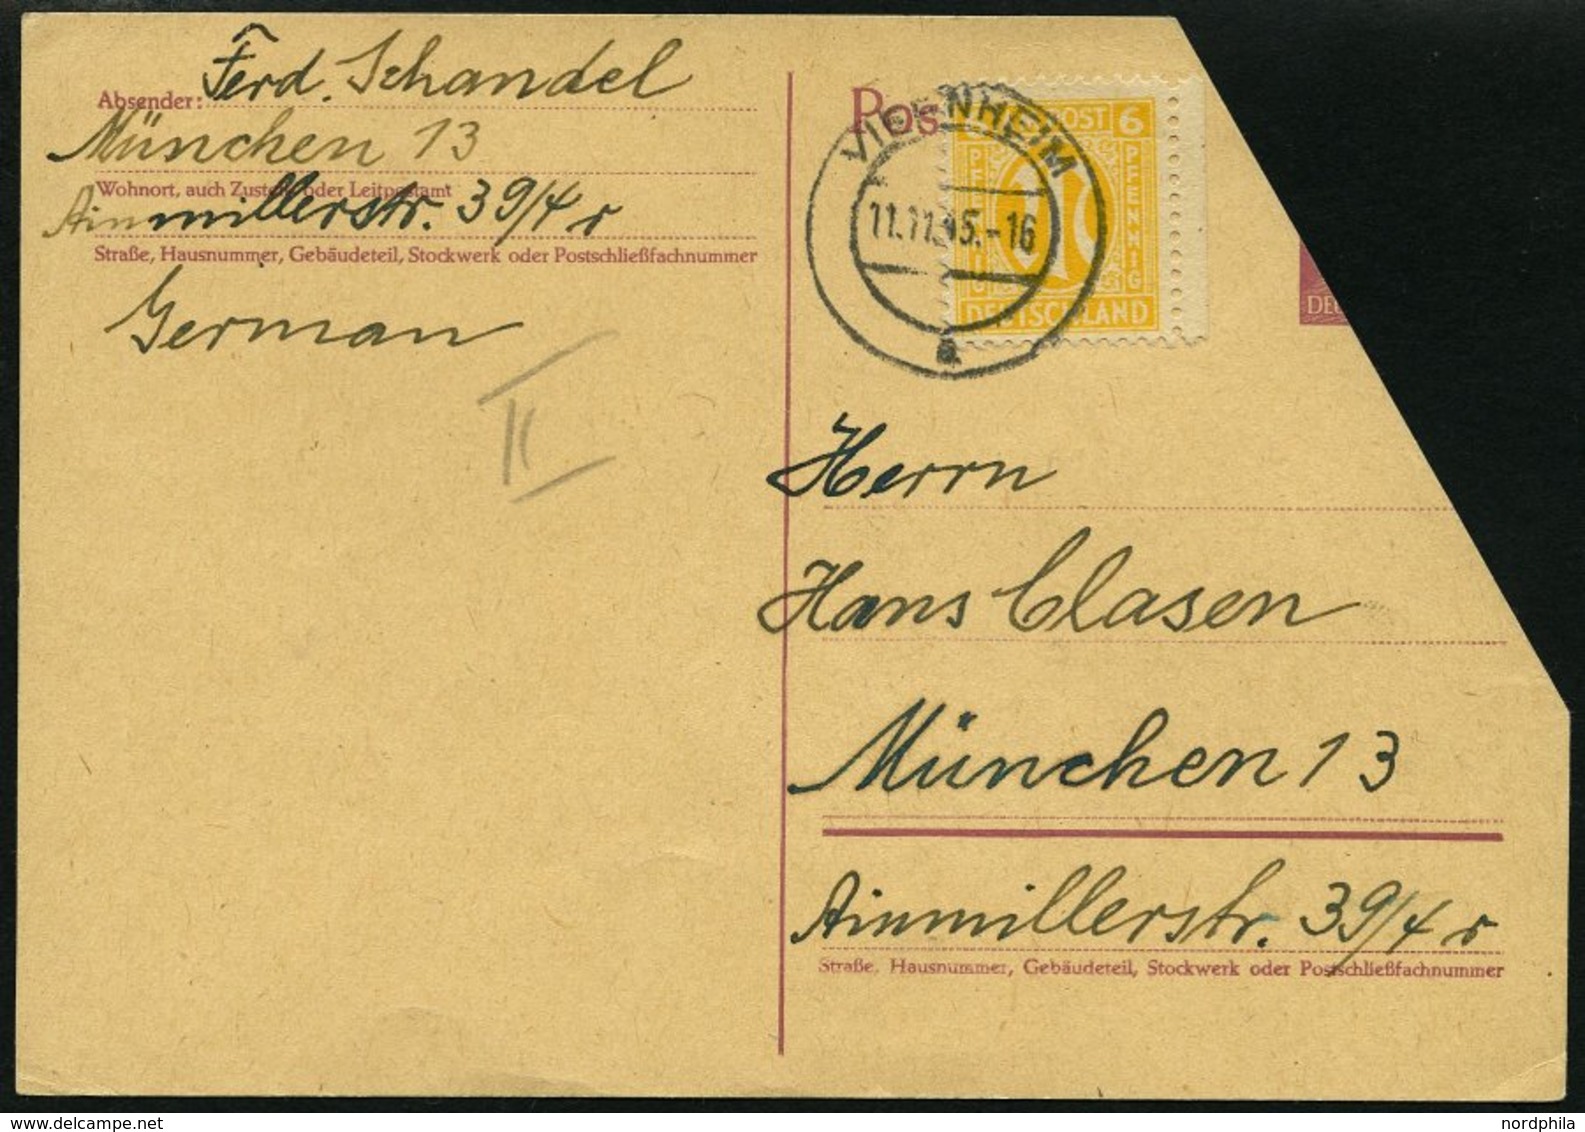 Absender: Ferd. Schandel
München 13
Wohnort, auch Zustell- oder Leitpostamt
Ainmillerstr. 39/4 r
Straße, Hausnummer, Gebäudeteil, Stockwerk oder Postschließfachnummer
German
II
Pos
VIERNHEIM
11.11.45.-16
a
POST 6
PFENNIG
DEUTSCHLAND
DEU
Herrn
Hans Clasen
München 13
Ainmillerstr. 39/4 r
Straße, Hausnummer, Gebäudeteil, Stockwerk oder Postschließfachnummer
nordphila